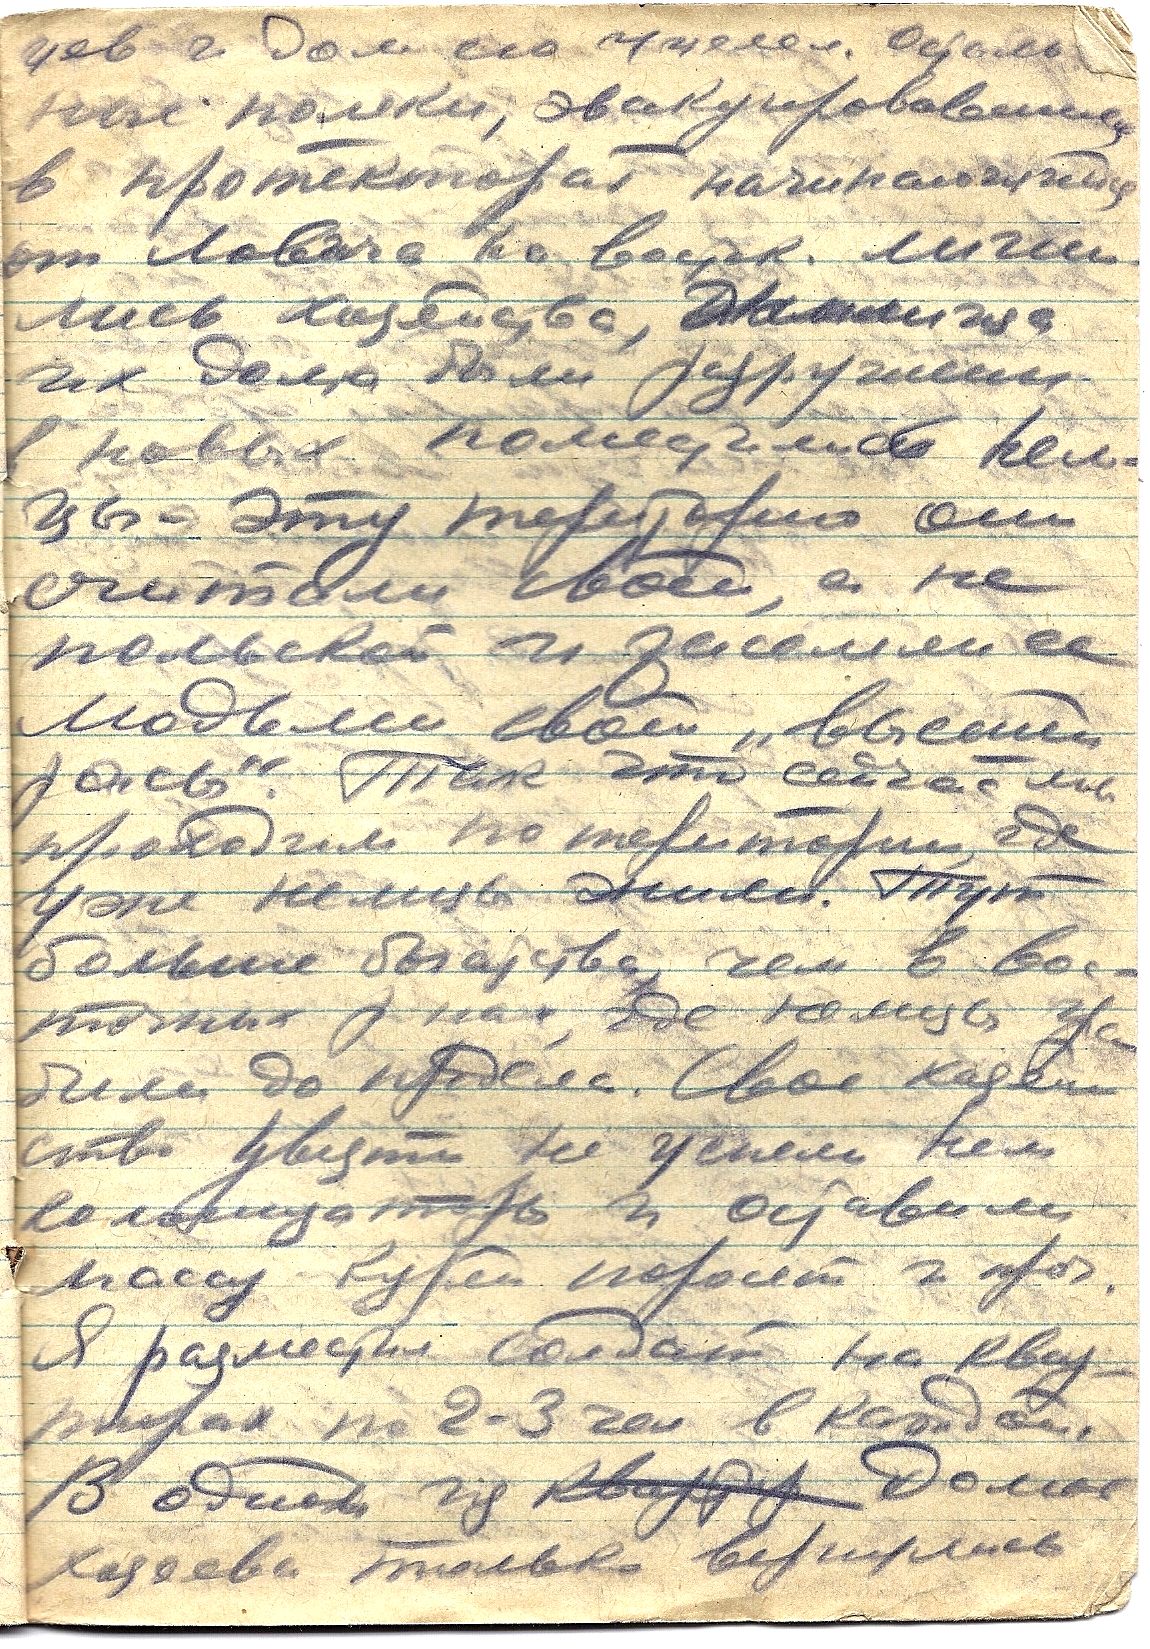 цев и дом его уцелел. Осталь
ные поляки, эвакуировавшиеся
в протекторат начинающийся
от Ловича на восток. лиши
лись хозяйства,
их дома были разрушены
в новых поместились нем-
цы - Эту територию они
считали своей, а не
польской и заселили ее
людьми своей „высшей
расы". Так что сейчас мы
проходим по територии где
уже немцы жили. Тут
больше богатства, чем в вос-
точных р-нах, где немцы гра
били до предела. Свое хозяй
ство увезти не успели нем
колонизаторы и оставили
массу кур поросят и проч.
Я разместил солдат на квар-
тирах по 2-3 чел в каждой.
В одном из домов
хозяева только вернулись